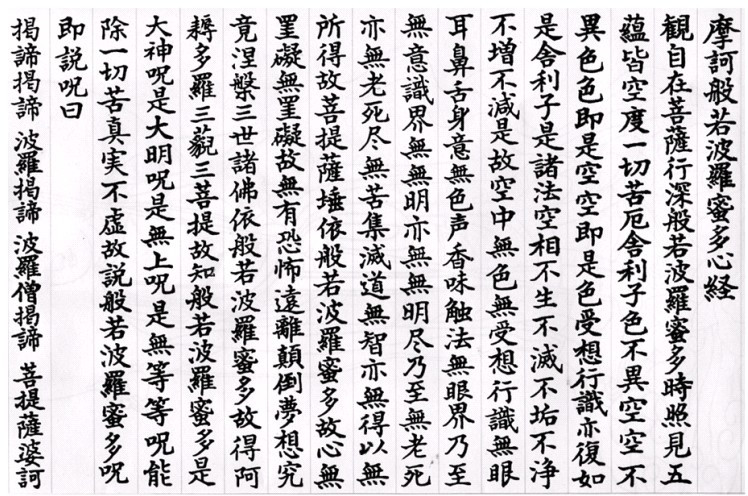 摩訶般若波羅蜜多心経
観自在菩薩行深般若波羅蜜多時照見五
蘊皆空度一切苦厄舎利子色不異空空不
異色色即是空空即是色受想行識亦復如
是舎利子是諸法空相不生不滅不垢不浄
不増不減是故空中無色無受想行識無眼
耳鼻舌身意無色声香味触法無眼界乃至
無意識界無無明亦無無明尽乃至無老死
亦無老死尽無苦集滅道無智亦無得以無
所得故菩提薩埵依般若波羅蜜多故心無
罣礙無罣礙故無有恐怖遠離顛倒夢想究
竟涅槃三世諸佛依般若波羅蜜多故得阿
耨多羅三藐三菩提故知般若波羅蜜多是
大神呪是大明呪是無上呪是無等等呪能
除一切苦真実不虚故説般若波羅蜜多呪
即説呪曰
掲諦掲諦 波羅掲諦 波羅僧掲諦 菩提薩婆訶